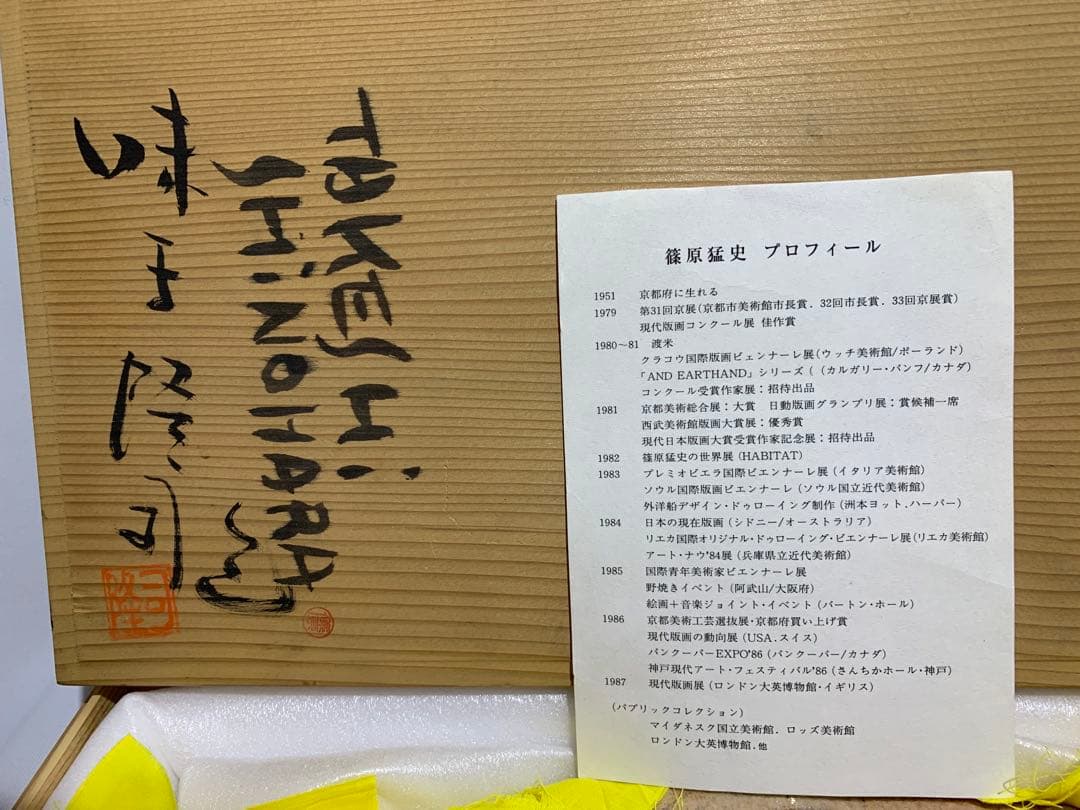 TAKESHi
SHiNOHARA
篠原猛史 プロフィール
1951 京都府に生れる
1979 第31回京展(京都市美術館市長賞.32回市長賞.33回京展賞)
現代版画コンクール展 佳作賞
1980〜81 渡米
クラコウ国際版画ビェンナーレ展(ウッチ美術館/ポーランド)
「AND EARTHAND」シリーズ((カルガリー・バンフ/カナダ)
コンクール受賞作家展：招待出品
1981 京都美術総合展：大賞 日動版画グランプリ展：賞候補一席
西武美術館版画大賞展：優秀賞
現代日本版画大賞受賞作家記念展：招待出品
1982 篠原猛史の世界展(HABITAT)
1983 プレミオビエラ国際ビエンナーレ展(イタリア美術館)
ソウル国際版画ビエンナーレ(ソウル国立近代美術館)
外洋船デザイン・ドゥローイング制作(洲本ヨット.ハーバー)
1984 日本の現在版画(シドニー/オーストラリア)
リエカ国際オリジナル・ドゥローイング・ビエンナーレ展(リエカ美術館)
アート・ナウ'84展(兵庫県立近代美術館)
1985 国際青年美術家ビエンナーレ展
野焼きイベント(阿武山/大阪府)
絵画＋音楽ジョイント・イベント(バートン・ホール)
1986 京都美術工芸選抜展・京都府買い上げ賞
現代版画の動向展(USA.スイス)
バンクーバーEXPO'86(バンクーバー/カナダ)
神戸現代アート・フェスティバル'86(さんちかホール・神戸)
1987 現代版画展(ロンドン大英博物館・イギリス)
(パブリックコレクション)
マイダネスク国立美術館.ロッズ美術館
ロンドン大英博物館.他